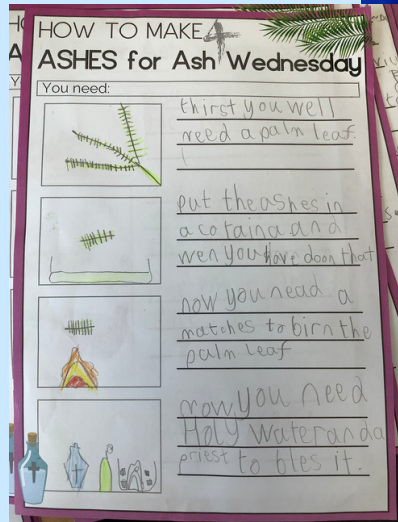 HOW TO MAKE 4
ASHES for Ash Wednesday
You need:
thirst you well
need a palm leaf.
put the ashes in
a cotaina and
wen you have doon that
now you nead a
matches to birn the
palm leaf
now you need
Holy water and a
priest to bles it.